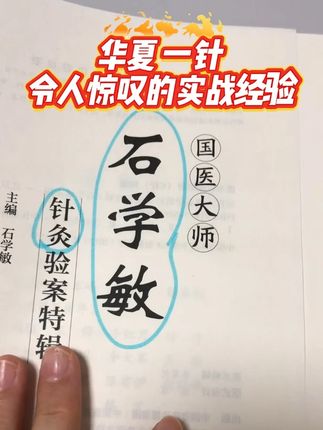 华夏一针
令人惊叹的实战经验
国医大师
石学敏
针灸验案特辑
主编 石学敏